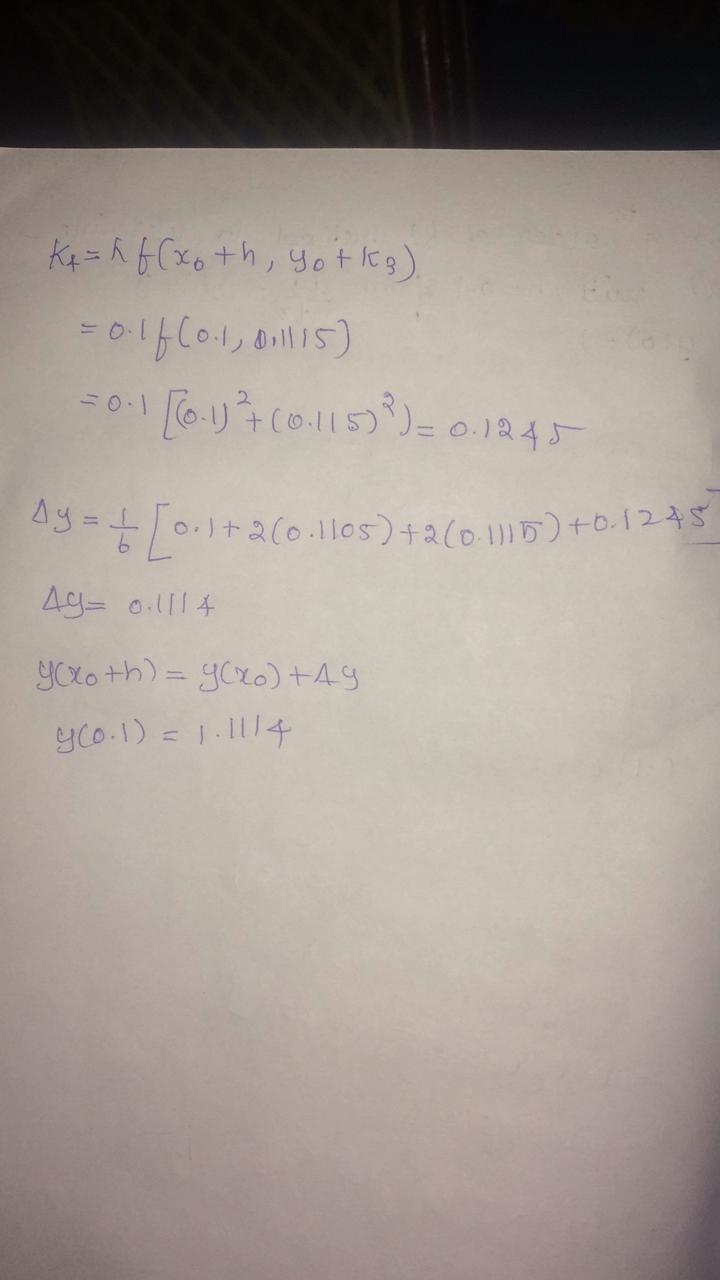 K₄ = h f(x₀ + h, y₀ + K₃)
= 0.1 f(0.1, 0.1115)
= 0.1 [(0.1)² + (0.115)²) = 0.1245
Δy = 1/6 [0.1 + 2(0.1105) + 2(0.1115) + 0.1245]
Δy = 0.1114
y(x₀ + h) = y(x₀) + Δy
y(0.1) = 1.1114